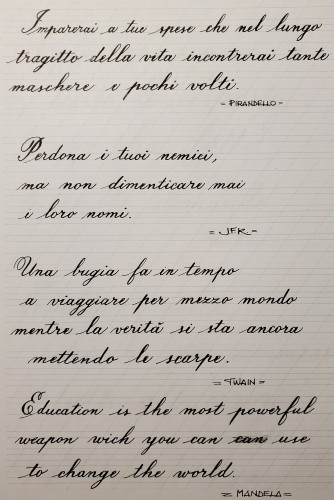 Imparerai a tue spese che nel lungo
tragitto della vita incontrerai tante
maschere e pochi volti.
= PIRANDELLO =
Perdona i tuoi nemici,
ma non dimenticare mai
i loro nomi.
= JFK =
Una bugia fa in tempo
a viaggiare per mezzo mondo
mentre la verità si sta ancora
mettendo le scarpe.
= TWAIN =
Education is the most powerful
weapon wich you can can use
to change the world.
= MANDELA =